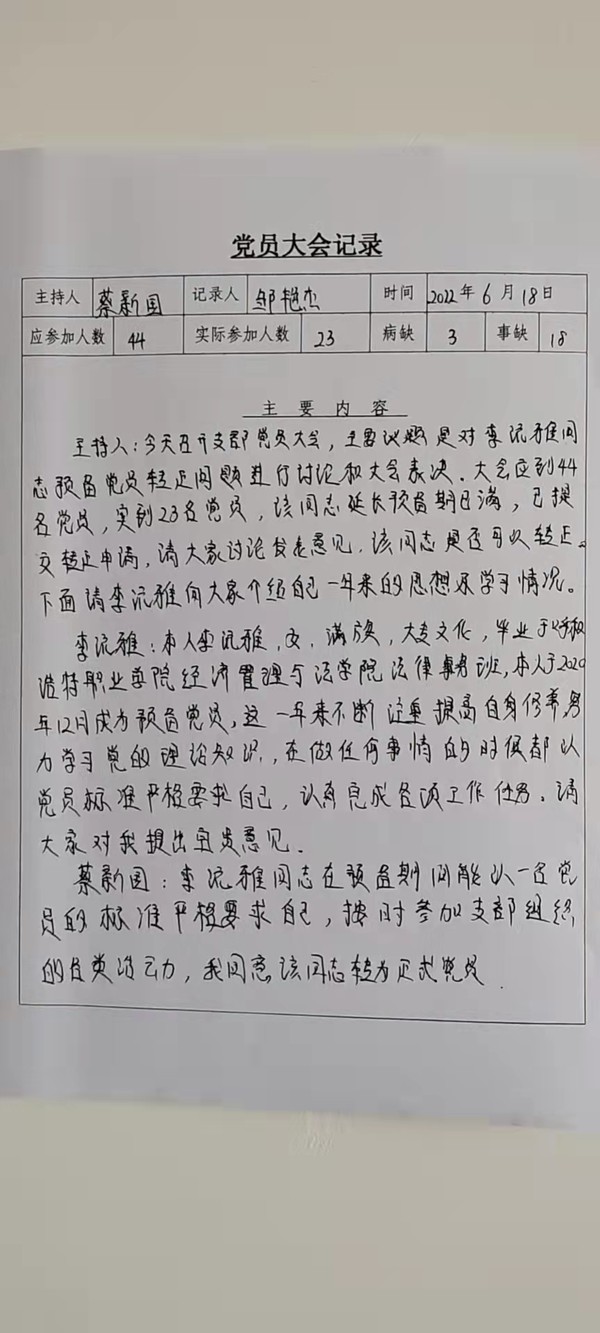 党员大会记录
主持人 蔡新国 记录人 邹艳杰 时间 2022年6月18日
应参加人数 44 实际参加人数 23 病缺 3 事缺 18
主要内容
主持人：今天召开支部党员大会，主要议题是对李沅雅同
志预备党员转正问题进行讨论和大会表决。大会应到44
名党员，实到23名党员，该同志延长预备期已满，已提
交转正申请，请大家讨论发表意见，该同志是否可以转正。
下面请李沅雅向大家介绍自己一年来的思想及学习情况。
李沅雅：本人李沅雅，女，满族，大专文化，毕业于呼和
浩特职业学院经济管理与法学院法律事务班，本人于2020
年12月成为预备党员，这一年来不断注重提高自身修养，努
力学习党的理论知识，在做任何事情的时候都以
党员标准严格要求自己，认真完成各项工作任务。请
大家对我提出宝贵意见。
蔡新国：李沅雅同志在预备期间能以一名党
员的标准严格要求自己，按时参加支部组织
的各类活动，我同意该同志转为正式党员